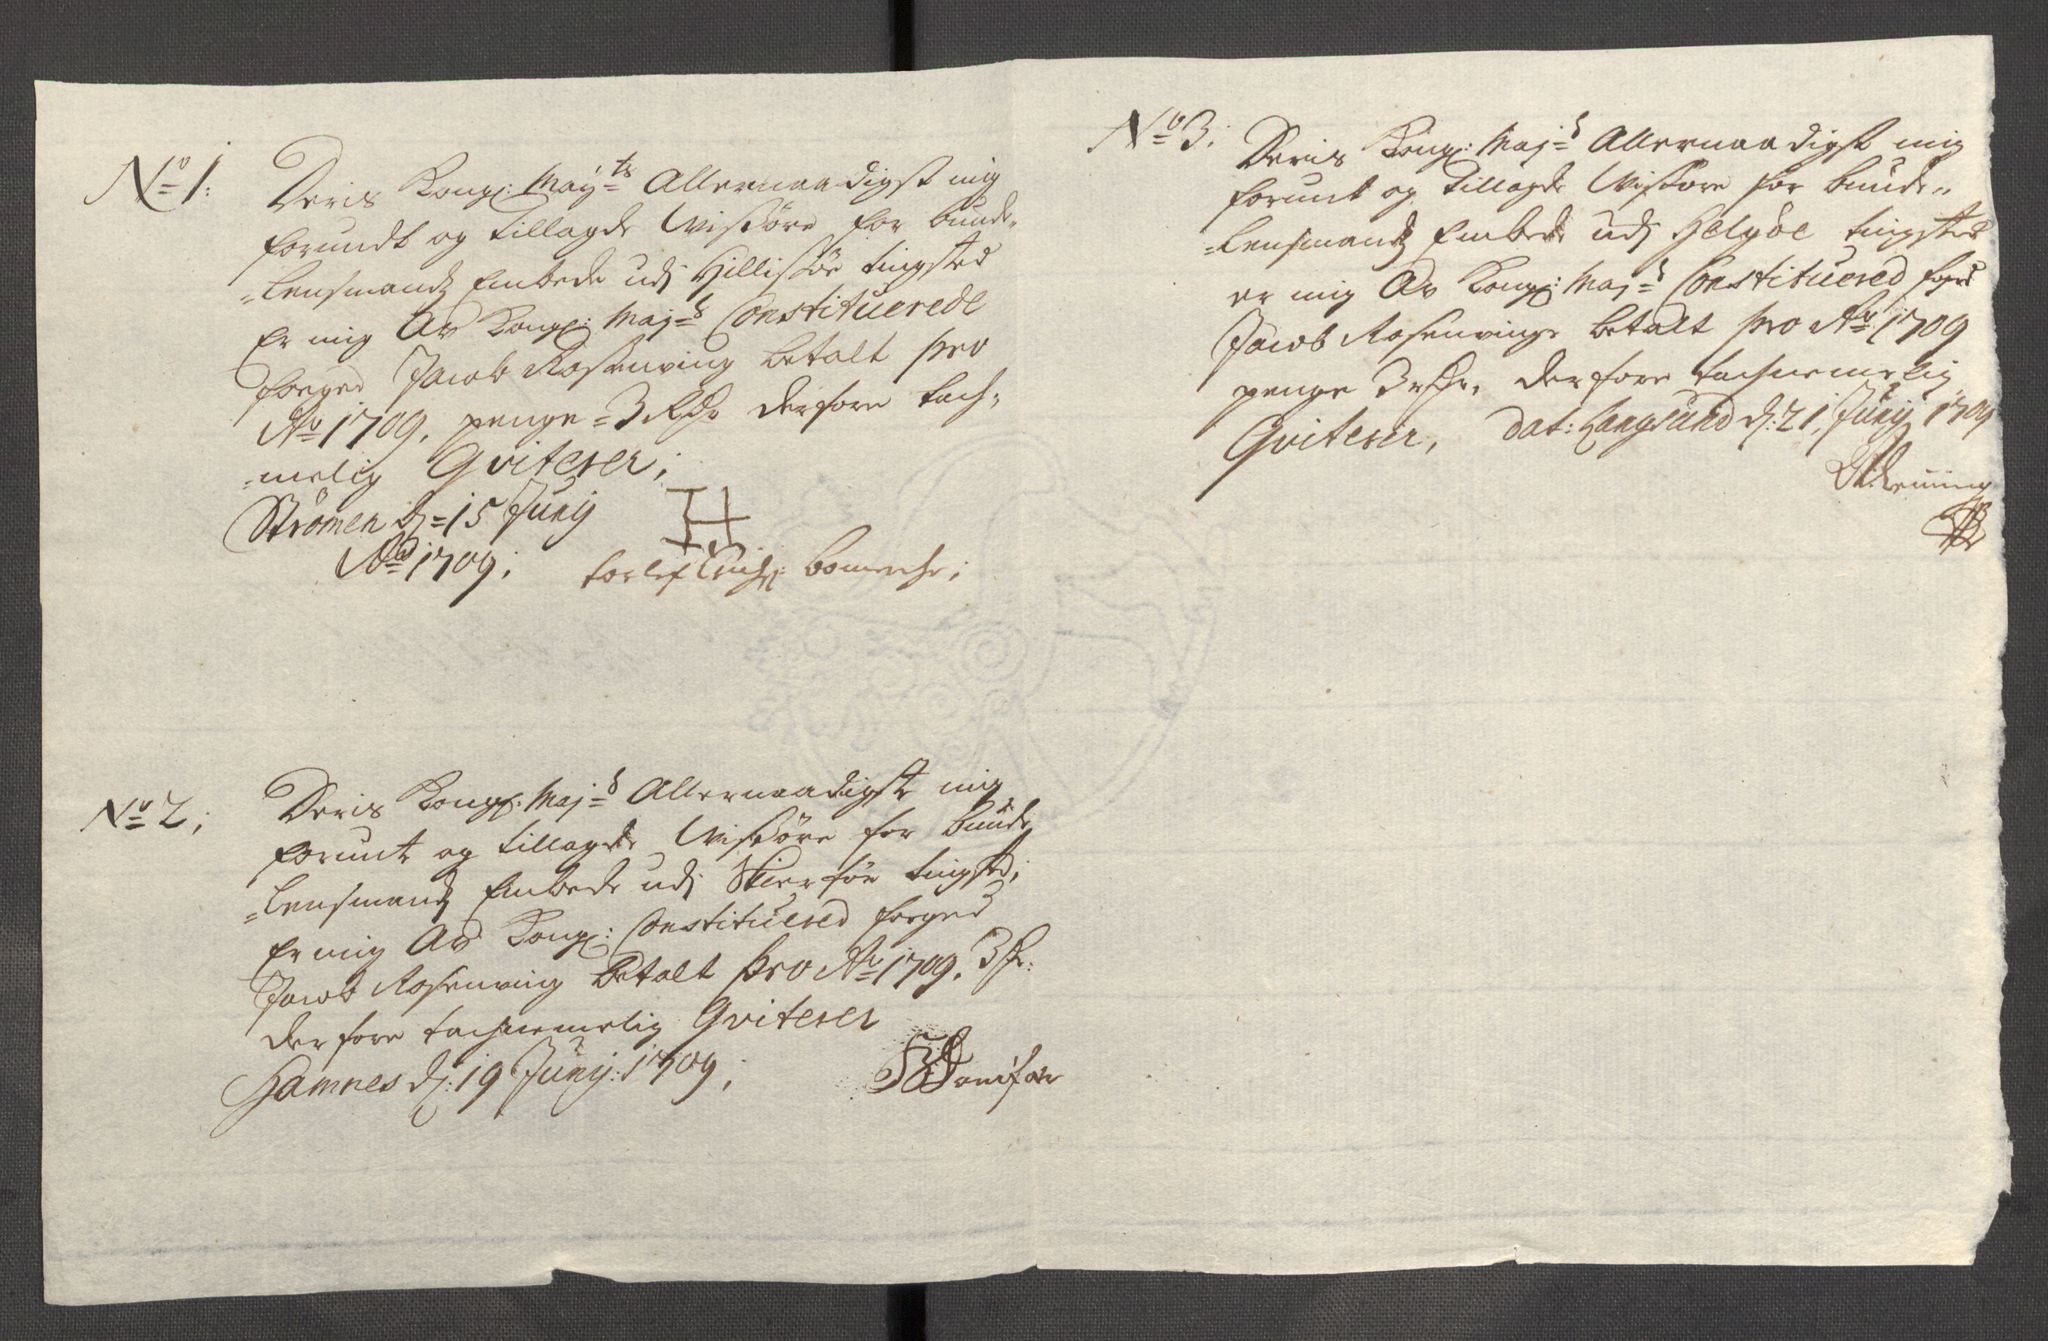 No 1:
Deris Kongl: May:ts Allernaadigst mig
forundt og tillagde Visøre for bunde-
=lensmandz Embede udj Hillisøe tingsted
Er mig Av Kongl: Maj:s Constituerede
foeged Jacob Rosenving betalt pro
Ao 1709. penge = 3 Rdr derfore tach=
=nemelig Qviterer;
Strømen dj = 15 Junij
Ao 1709;
torlef
No 2;
Deris Kongl: Maj:s Allernaadigste mig
forunt og tillagde Visøre for bunde
=lensmandz Embede udj Skierføe tingsted;
Er mig Av Kongl: Constituered foeged
Jacob Rosenving betalt pro Ao 1709. 3 dr:
derfore tachnemelig Qviterer
Hamnes dj: 19 Junij: 1709;
No 3:
Deris Kongl: Maj:s Allernaadigst mig
forunt og tillagde Visøre for bunde=
=lensmandz Embede udj Helgøe tingsted
er mig Av Kongl: Maj:s Constituered foged
Jacob Rosenvinge betalt pro Ao 1709
penge 3 rdr. derfore tachnemelig
Qviterer, dat: Langsund dj: 21 Junij 1709